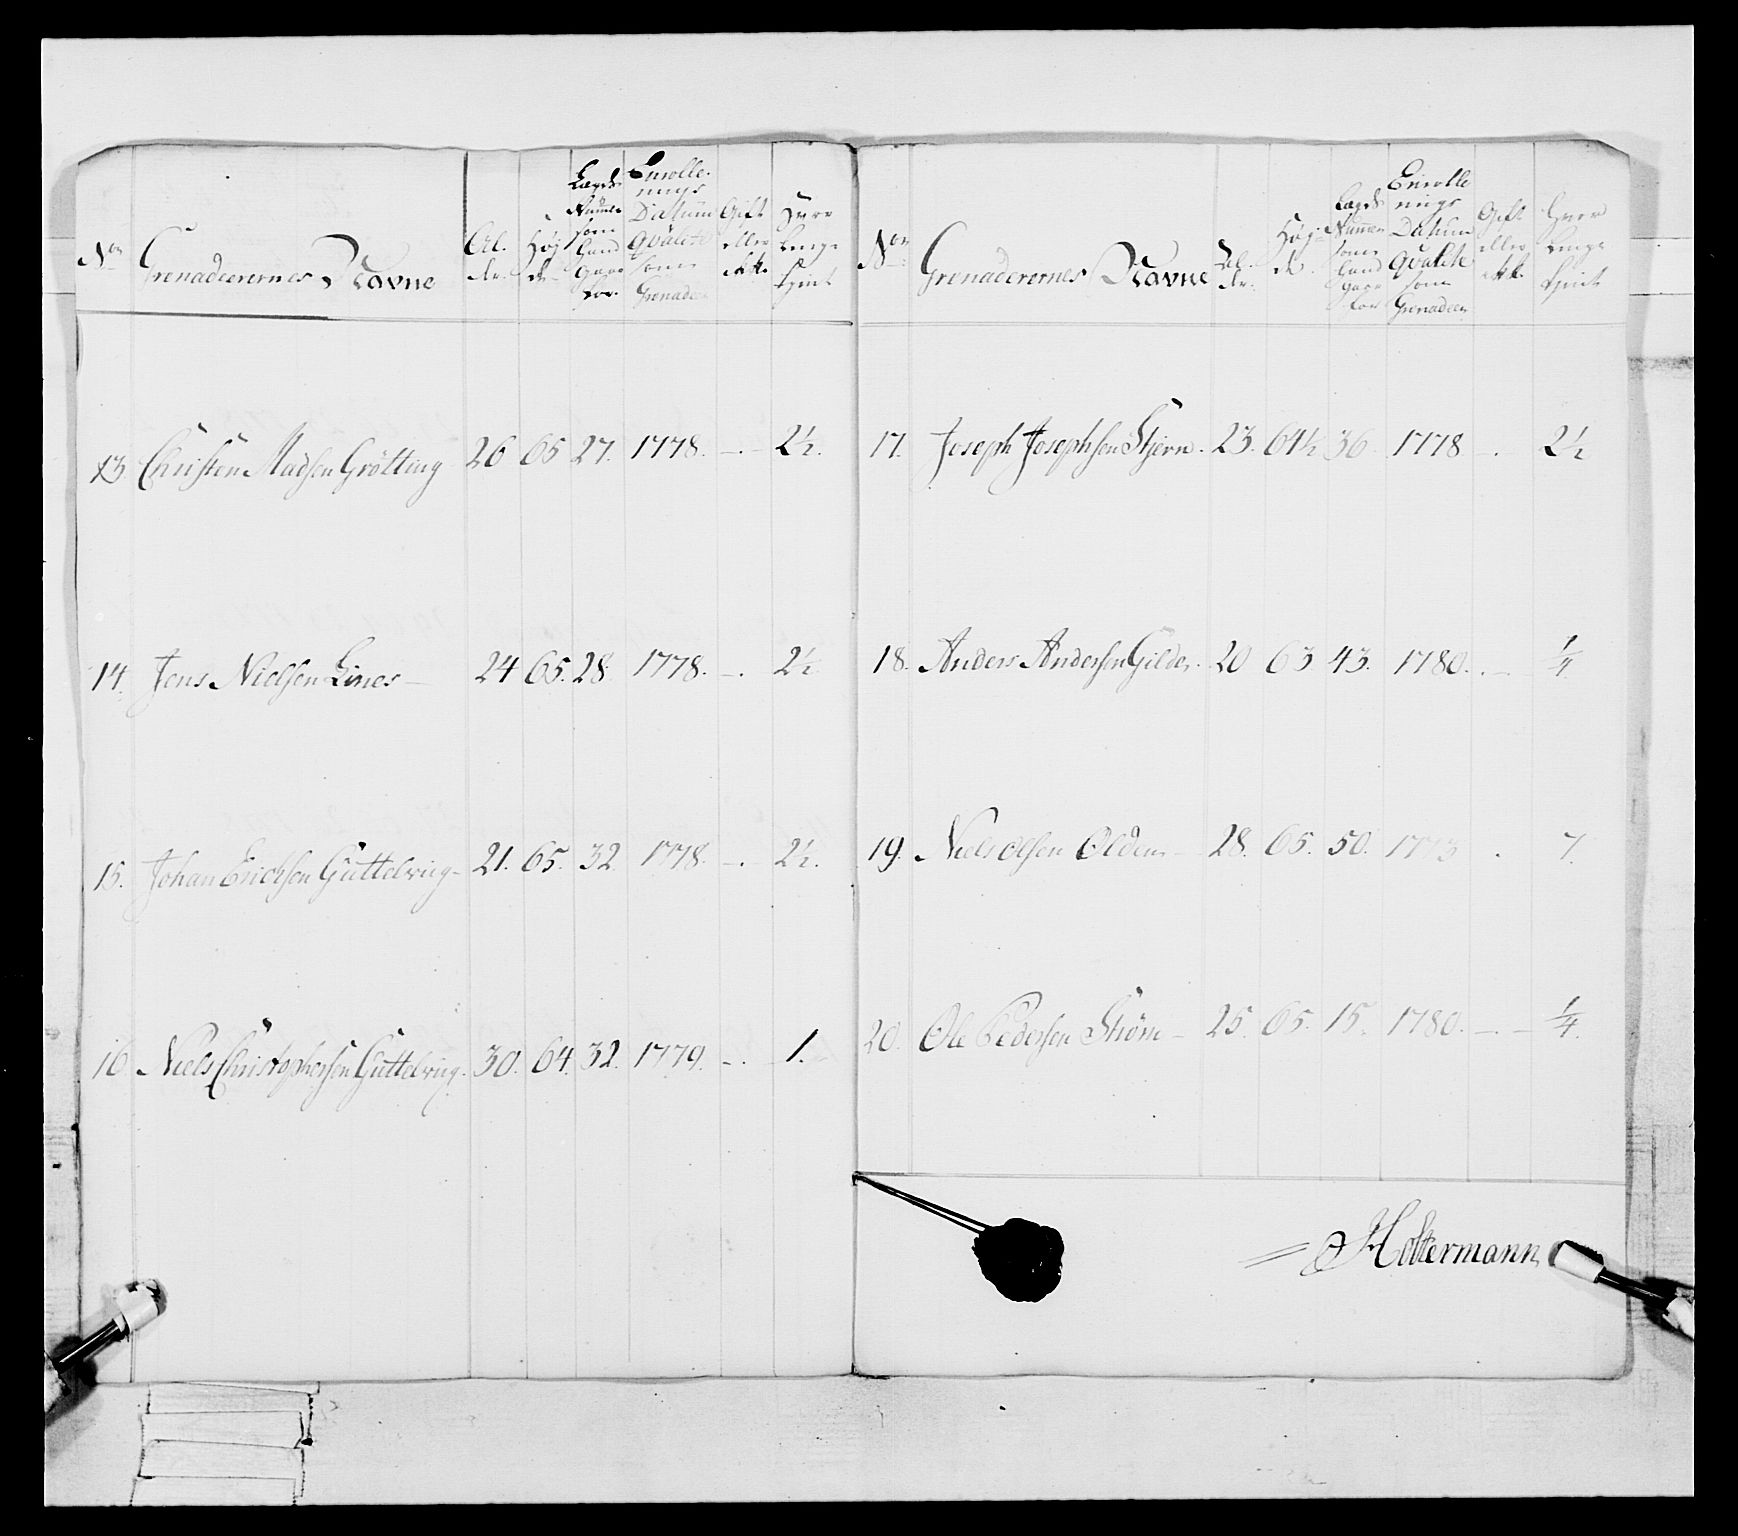 No. Grenadeerernes Navne Al- der. Høj- de. Lægds Numer som hand Gaar for. Enrolle- rings Datum Qvalité som Grenadeer Gift eller ikke. Hvor lenge tjent
13. Christen Madsen Grötting 26 65 27. 1778. -.- 2½.
14. Jens Nielsen Lines — 24 65. 28. 1778. -. 2½
15. Johan Erichsen Guttelvrug- 21. 65. 32. 1778. -.- 2½.
16 Niels Christophersen Guttelvrug. 30. 64. 32. 1779. -.- 1.
No. Grenaderernes Navne Al- der. Høj- de. Lægds Numer som hand gaar for Enrolle rings Datum Qvalité som Grenadeer Gift eller ikke. Hvor lenge tjent
17. Joseph Josephsen Stjern. 23. 64½ 36. 1778 -. 2½
18. Anders Andersen Gilde. 20 63 43. 1780. .- ¼
19. Niels Olsen Olden — 28. 65. 50. 1773 . 7.
20. Ole Pedersen Ström — 25. 65. 15. 1780. -.- ¼.
Holtermann